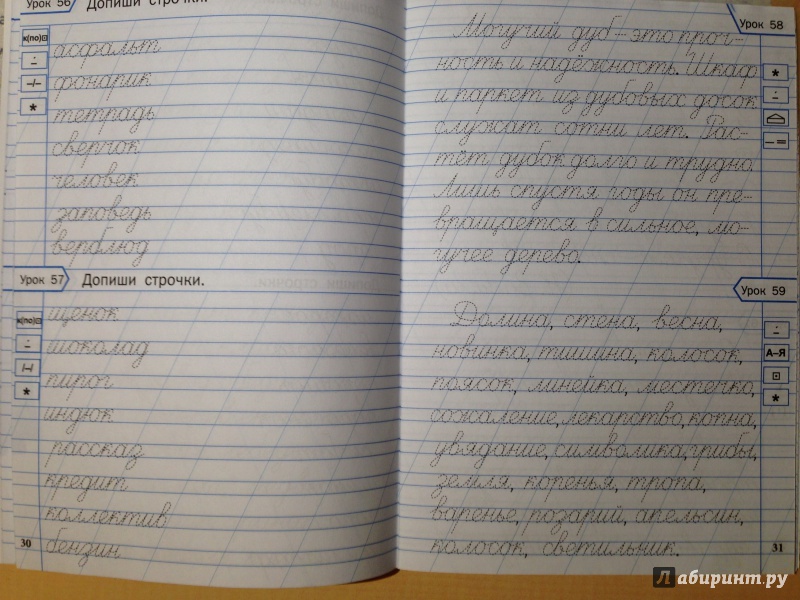 Урок 56 Допиши строчки.
к(по)
асфальт
фонарик
тетрадь
сверчок
человек
заповедь
верблюд
Урок 57 Допиши строчки.
к(по)
щенок
шоколад
пирог
индюк
рассказ
кредит
коллектив
бензин
30
Урок 58
Могучий дуб – это проч-
ность и надёжность. Шкаф
и паркет из дубовых досок
служат сотни лет. Рас-
тёт дубок долго и трудно.
Лишь спустя годы он пре-
вращается в сильное, мо-
гучее дерево.
Урок 59
А–Я
Долина, стена, весна,
новинка, тишина, колосок,
поясок, линейка, местечко,
сожаление, лекарство, копна,
увядание, символика, грибы,
земля, коренья, тропа,
варенье, розарий, апельсин,
колосок, светильник.
31
Лабиринт.ру